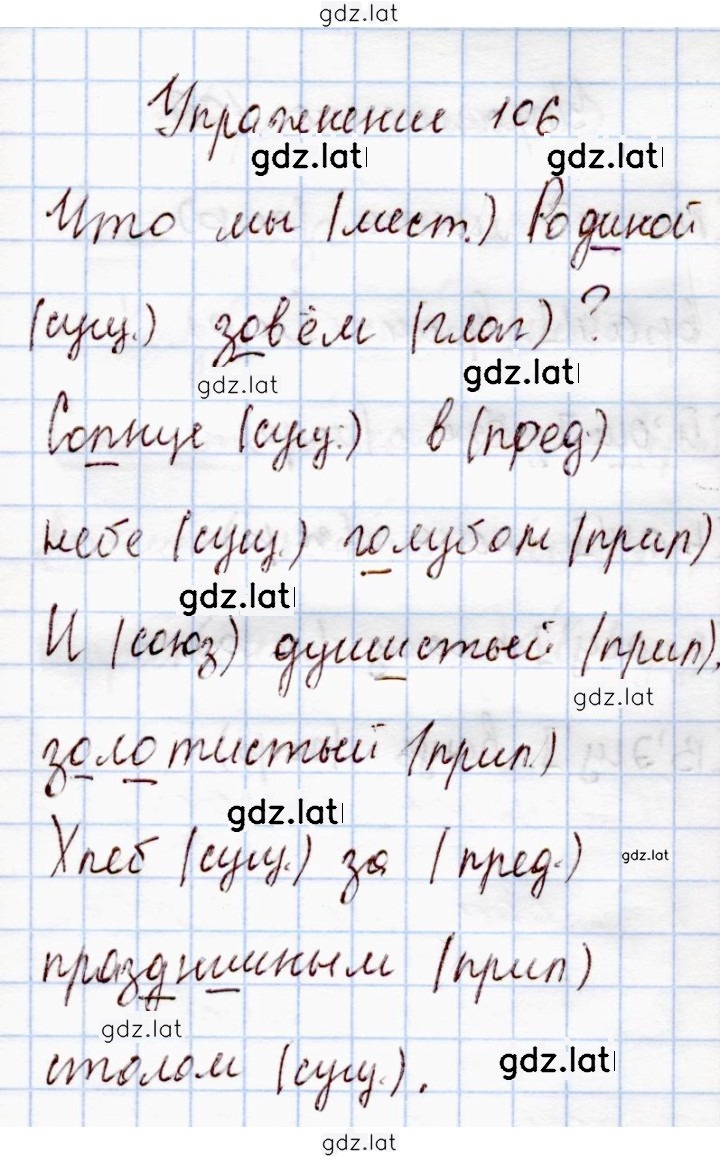 gdz.lat
Упражнение 106
gdz.lat gdz.lat
Что мы (мест.) Родиной
(сущ.) зовём (глаг) ?
gdz.lat gdz.lat
Солнце (сущ.) в (пред)
небе (сущ.) голубом (прил)
gdz.lat
И (союз) душистый (прил),
gdz.lat
золотистый (прил.)
gdz.lat
Хлеб (сущ.) за (пред.)
gdz.lat
праздничным (прил)
gdz.lat
столом (сущ.).
gdz.lat
gdz.lat